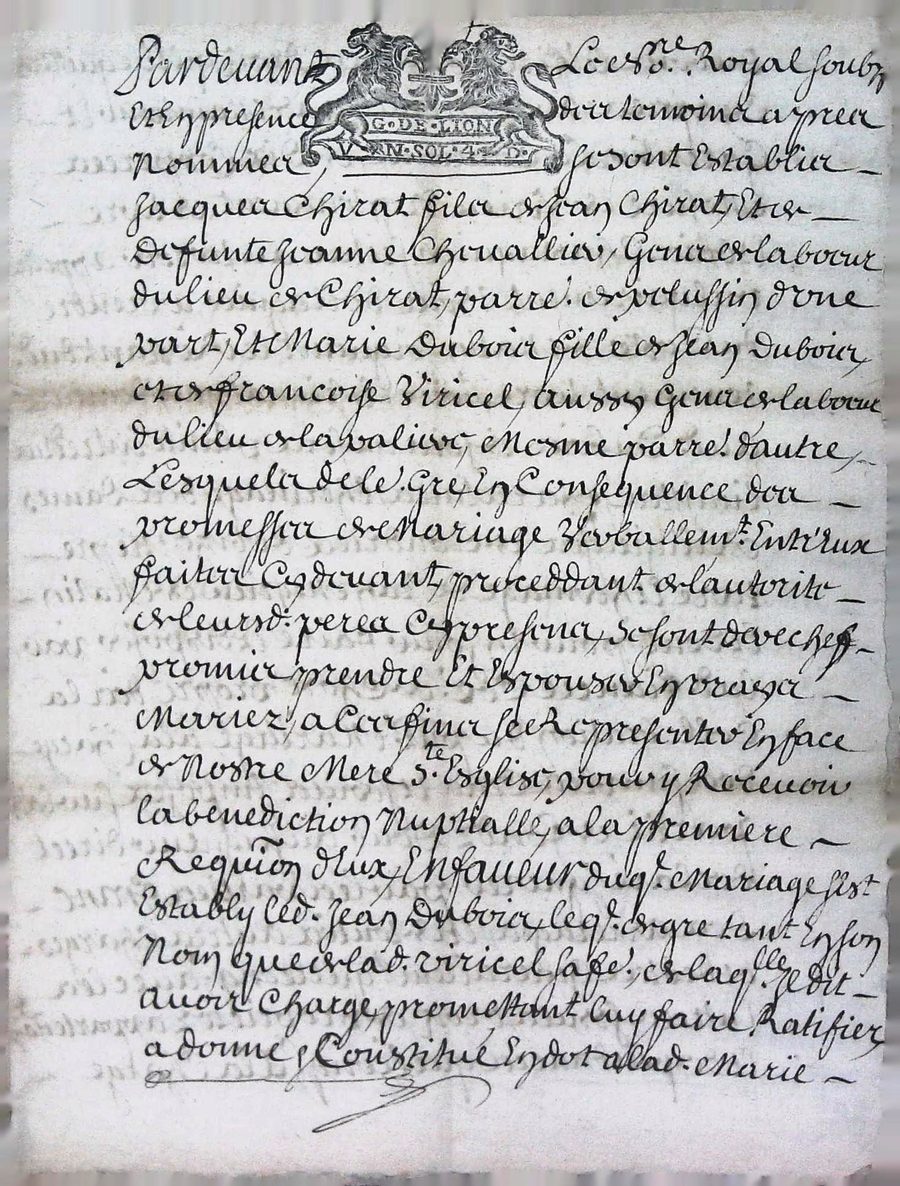 Pardevant Le No.re Royal soubz
G·DE·LION
V N·SOL·4·D·
Et En presence des temoins apres
Nommes, se sont Establis
Jacques Chirat fils de Jean Chirat, Et de
defunte Jeanne Chevallier, Gens de labœur
du lieu de Chirat, parre. de pelussin d'une
part, Et Marie Dubois fille de Jean Dubois,
et de francoise Viricel, aussy Gens de labœur
du lieu de la valiere, Mesme parre. d'autre,
Lesquels de le. Gre, En Consequence des
promesses de Mariage Verballemt. Entr'Eux
faites Cydevant, proceddant de l'autorite
de leursd. peres Cy presens, se sont derechef
promis prendre Et Espouser En vrays
Mariez, a Ces fins se Representer En face
de Nostre Mere Ste. Esglise, pour y Recevoir
la benediction Nuptialle, a la premiere
Requion d'Eux, En faveur duql. Mariage s'est
Establi led. Jean Dubois, leql. de gre tant En son
Nom que de lad. viricel sa fe., de laqlle Il dit
avoir Charge, promettant luy faire Ratifier,
a donne, Constitué En dot a lad. Marie